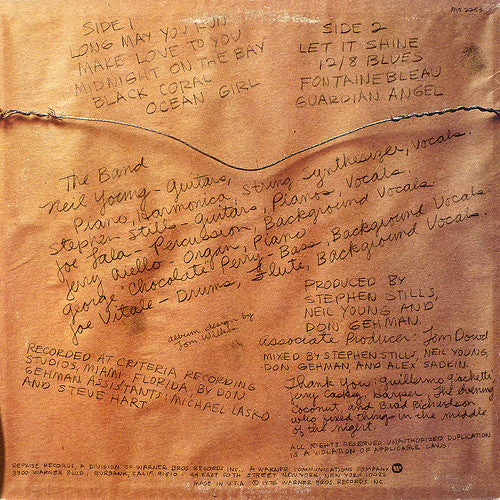 MS 2253
SIDE 1
LONG MAY YOU RUN
MAKE LOVE TO YOU
MIDNIGHT ON THE BAY
BLACK CORAL
OCEAN GIRL
SIDE 2
LET IT SHINE
12/8 BLUES
FONTAINEBLEAU
GUARDIAN ANGEL
The Band
Neil Young - Guitars,
Piano, Harmonica, String Synthesizer, Vocals.
Stephen Stills - Guitars, Pianos, Vocals.
Joe Lala - Percussion, Background Vocals.
Jerry Aiello - Organ, Piano
George "Chocolate" Perry - Bass, Background Vocals
Joe Vitale - Drums, Flute, Background Vocals.
album design: by
Tom Wilkes
PRODUCED BY
STEPHEN STILLS,
NEIL YOUNG AND
DON GEHMAN.
Associate Producer: Tom Dowd
MIXED BY STEPHEN STILLS, NEIL YOUNG,
DON GEHMAN AND ALEX SADKIN.
RECORDED AT CRITERIA RECORDING
STUDIOS, MIAMI FLORIDA, BY DON
GEHMAN ASSISTANTS: MICHAEL LASKO
AND STEVE HART.
Thank You: Guillermo Giachetti,
Jerry Harper, The evening
Coconut, and Brad Richardson
who fixed things in the middle
of the night.
ALL RIGHTS RESERVED UNAUTHORIZED DUPLICATION
IS A VIOLATION OF APPLICABLE LAWS.
REPRISE RECORDS, A DIVISION OF WARNER BROS. RECORDS INC., A WARNER COMMUNICATIONS COMPANY
3300 WARNER BLVD., BURBANK, CALIF. 91510 · 44 EAST 50TH STREET NEW YORK, NEW YORK 10022
MADE IN U.S.A. © 1976 WARNER BROS. RECORDS INC.